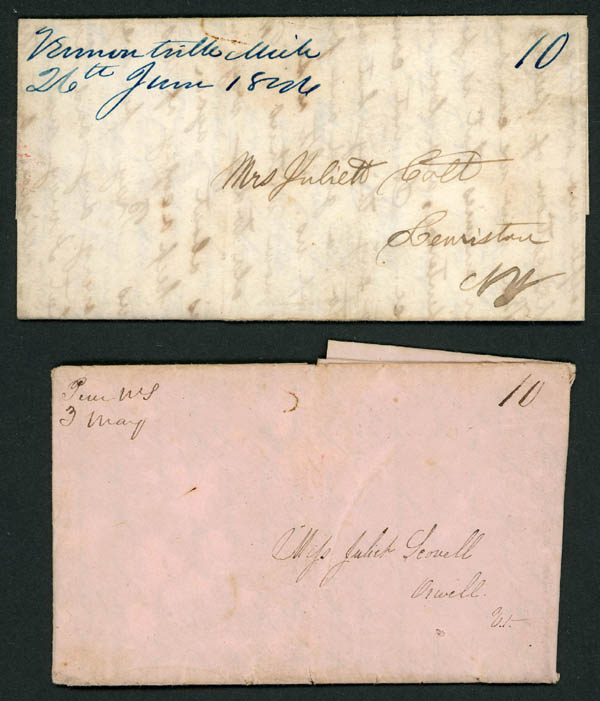 Vermontville Mich
10
26th June 1846
Mrs Juliett Colt
Lewiston
NY
3 May
10
Miss Juliet Scovell
Orwell
Vt.